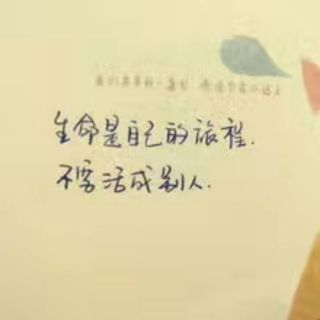 生命是自己的旅程.
不要活成别人.